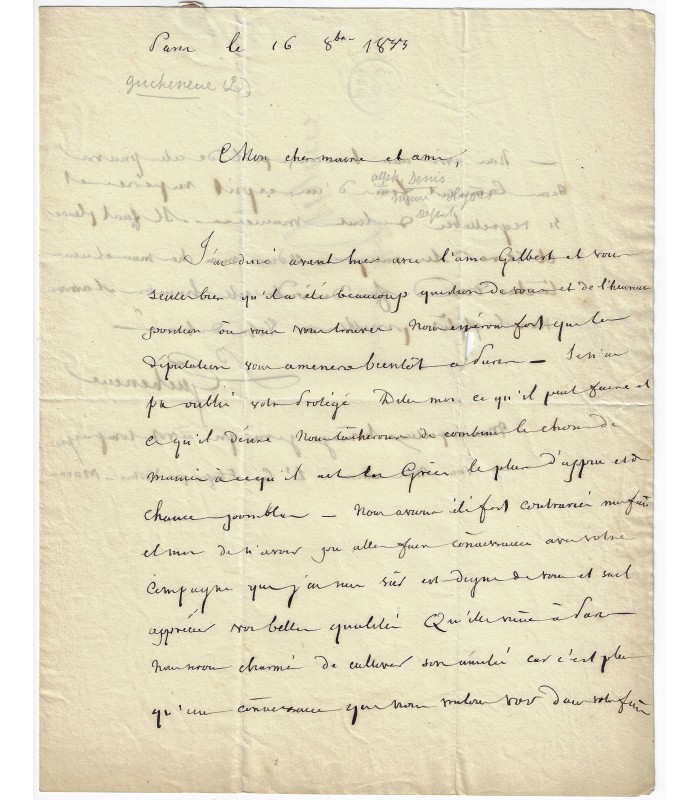 Paris le 16 8bre 1833
Gucheneuc (L)
Mon cher maire et ami,
alph. Denis
maire Hyères
Député
J'ai dîné avant hier avec l'ami Gilbert et vous
sentez bien qu'il a été beaucoup question de vous et de l'heureuse
position où vous vous trouvez Nous espérons fort que la
députation vous amenera bientôt à Paris — Je n'ai
pas oublié votre Protégé Dites moi ce qu'il peut faire et
ce qu'il désire Nous tâcherons de combiner les choses de
manière à ce qu'il ait en Grèce le plus d'appui et de
chances possibles — Nous avons été fort contrariés ma femme
et moi de n'avoir pu aller faire connaissance avec votre
compagne que j'en suis sûr est digne de vous et sait
apprécier vos belles qualités Qu'elle vienne à Paris
Nous serons charmés de cultiver son amitié car c'est plus
qu'une connaissance que nous voulons voir dans votre femme